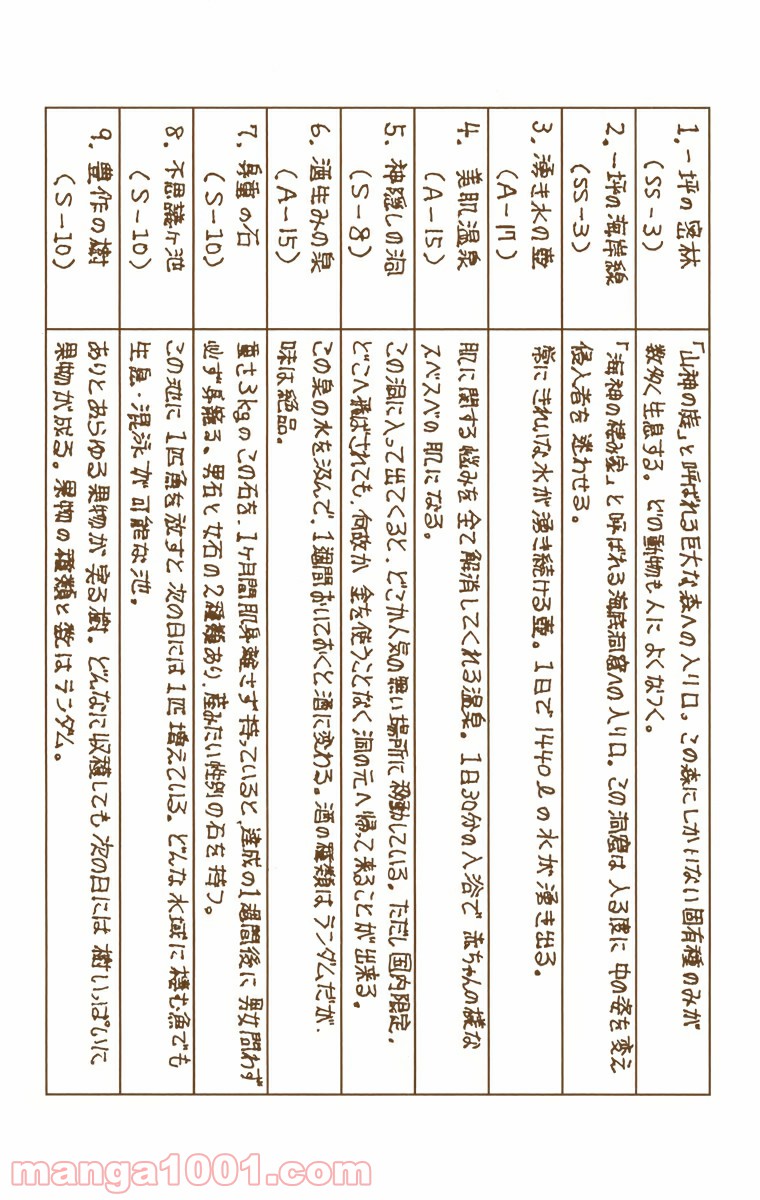 1. 一坪の密林
(SS-3)
「山神の庭」と呼ばれる巨大な森への入り口。この森にしかいない固有種のみが
数多く生息する。どの動物も人によくなつく。
2. 一坪の海岸線
(SS-3)
「海神の棲み家」と呼ばれる海底洞窟への入り口。この洞窟は入る度に中の姿を変え
侵入者を迷わせる。
3. 湧き水の壺
(A-17)
常にきれいな水が湧き続ける壺。1日で1440ℓの水が湧き出る。
4. 美肌温泉
(A-15)
肌に関する悩みを全て解消してくれる温泉。1日30分の入浴で赤ちゃんの様な
スベスベの肌になる。
5. 神隠しの洞
(S-8)
この洞に入って出てくると、どこか人気の無い場所に移動している。ただし国内限定。
どこへ飛ばされても、何故か金を使うことなく洞の元へ帰って来ることが出来る。
6. 酒生みの泉
(A-15)
この泉の水を汲んで、1週間おいておくと酒に変わる。酒の種類はランダムだが、
味は絶品。
7. 身重の石
(S-10)
重さ3kgのこの石を、1ヶ月間肌身離さず持っていると、達成の1週間後に男女問わず
必ず身籠る。男石と女石の2種類あり、産みたい性別の石を持つ。
8. 不思議ヶ池
(S-10)
この池に1匹魚を放すと次の日には1匹増えている。どんな水域に棲む魚でも
生息・混泳が可能な池。
9. 豊作の樹
(S-10)
ありとあらゆる果物が実る樹。どんなに収穫しても次の日には樹いっぱいに
果物が成る。果物の種類と数はランダム。
manga1001.com